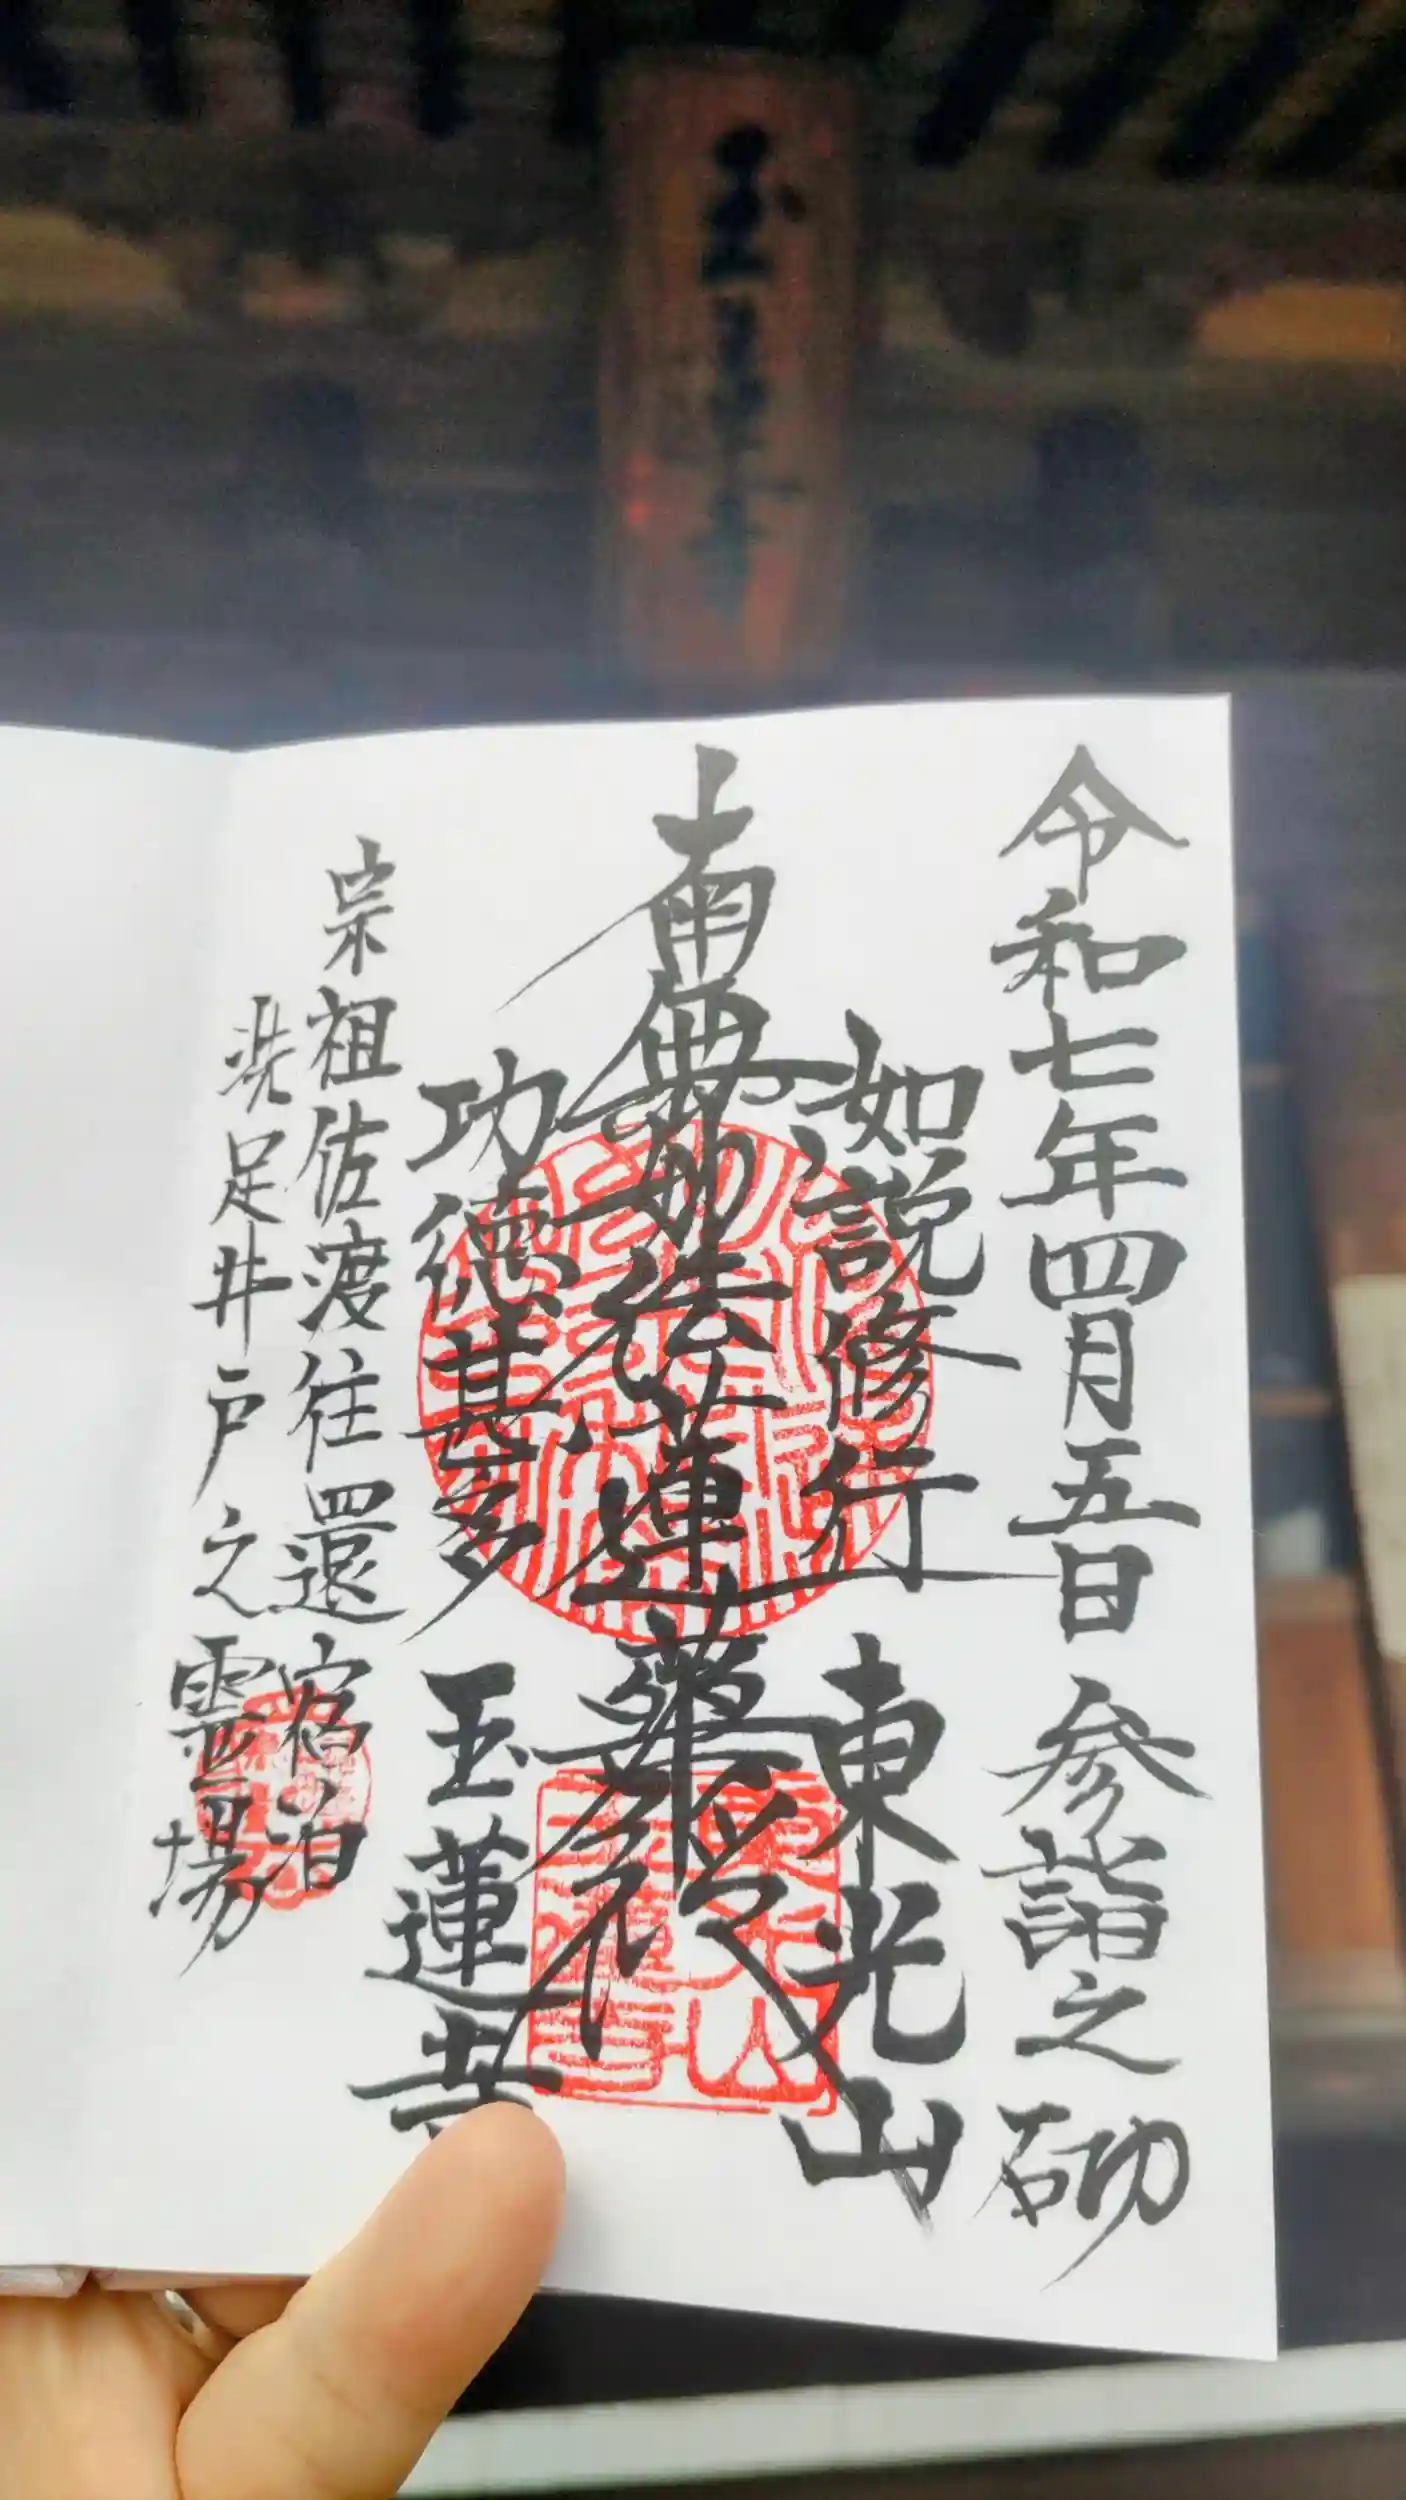 令和七年四月五日 参詣之砌
如説修行 東光山
南無妙法蓮華経
功徳甚多 玉蓮寺
宗祖佐渡往還宿泊
洗足井戸之霊場